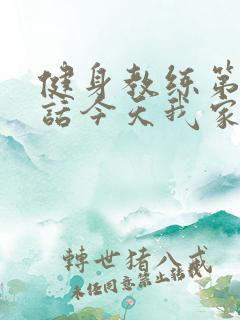 健身教练第
話今天我家
轉世猪八戒
未经同意禁止转载